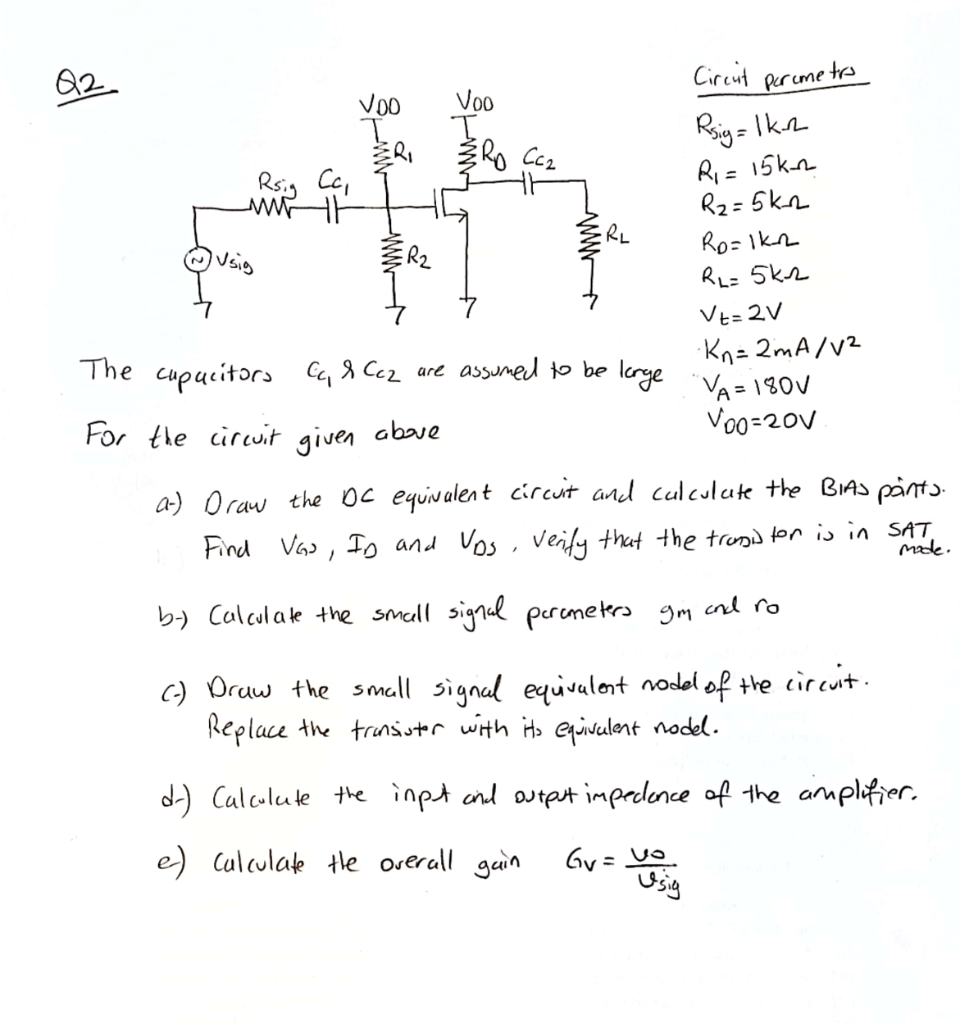 Q2
Circuit parametrs
VDD VDD
Rsig = 1kΩ
R1 RD Cc2
R1 = 15kΩ
Rsig Cc1
R2 = 5kΩ
RL
RD = 1kΩ
Vsig R2
RL = 5kΩ
Vt = 2V
Kn = 2mA/V²
The capacitors Cc1 & Cc2 are assumed to be large
VA = 180V
VDD = 20V
For the circuit given above
a-) Draw the DC equivalent circuit and calculate the BIAS points.
Find VGS, ID and VDS, Verify that the transistor is in SAT mode.
b-) Calculate the small signal parameters gm and ro
c-) Draw the small signal equivalent model of the circuit.
Replace the transistor with its equivalent model.
d-) Calculate the input and output impedance of the amplifier.
e-) Calculate the overall gain Gv = vo / vsig